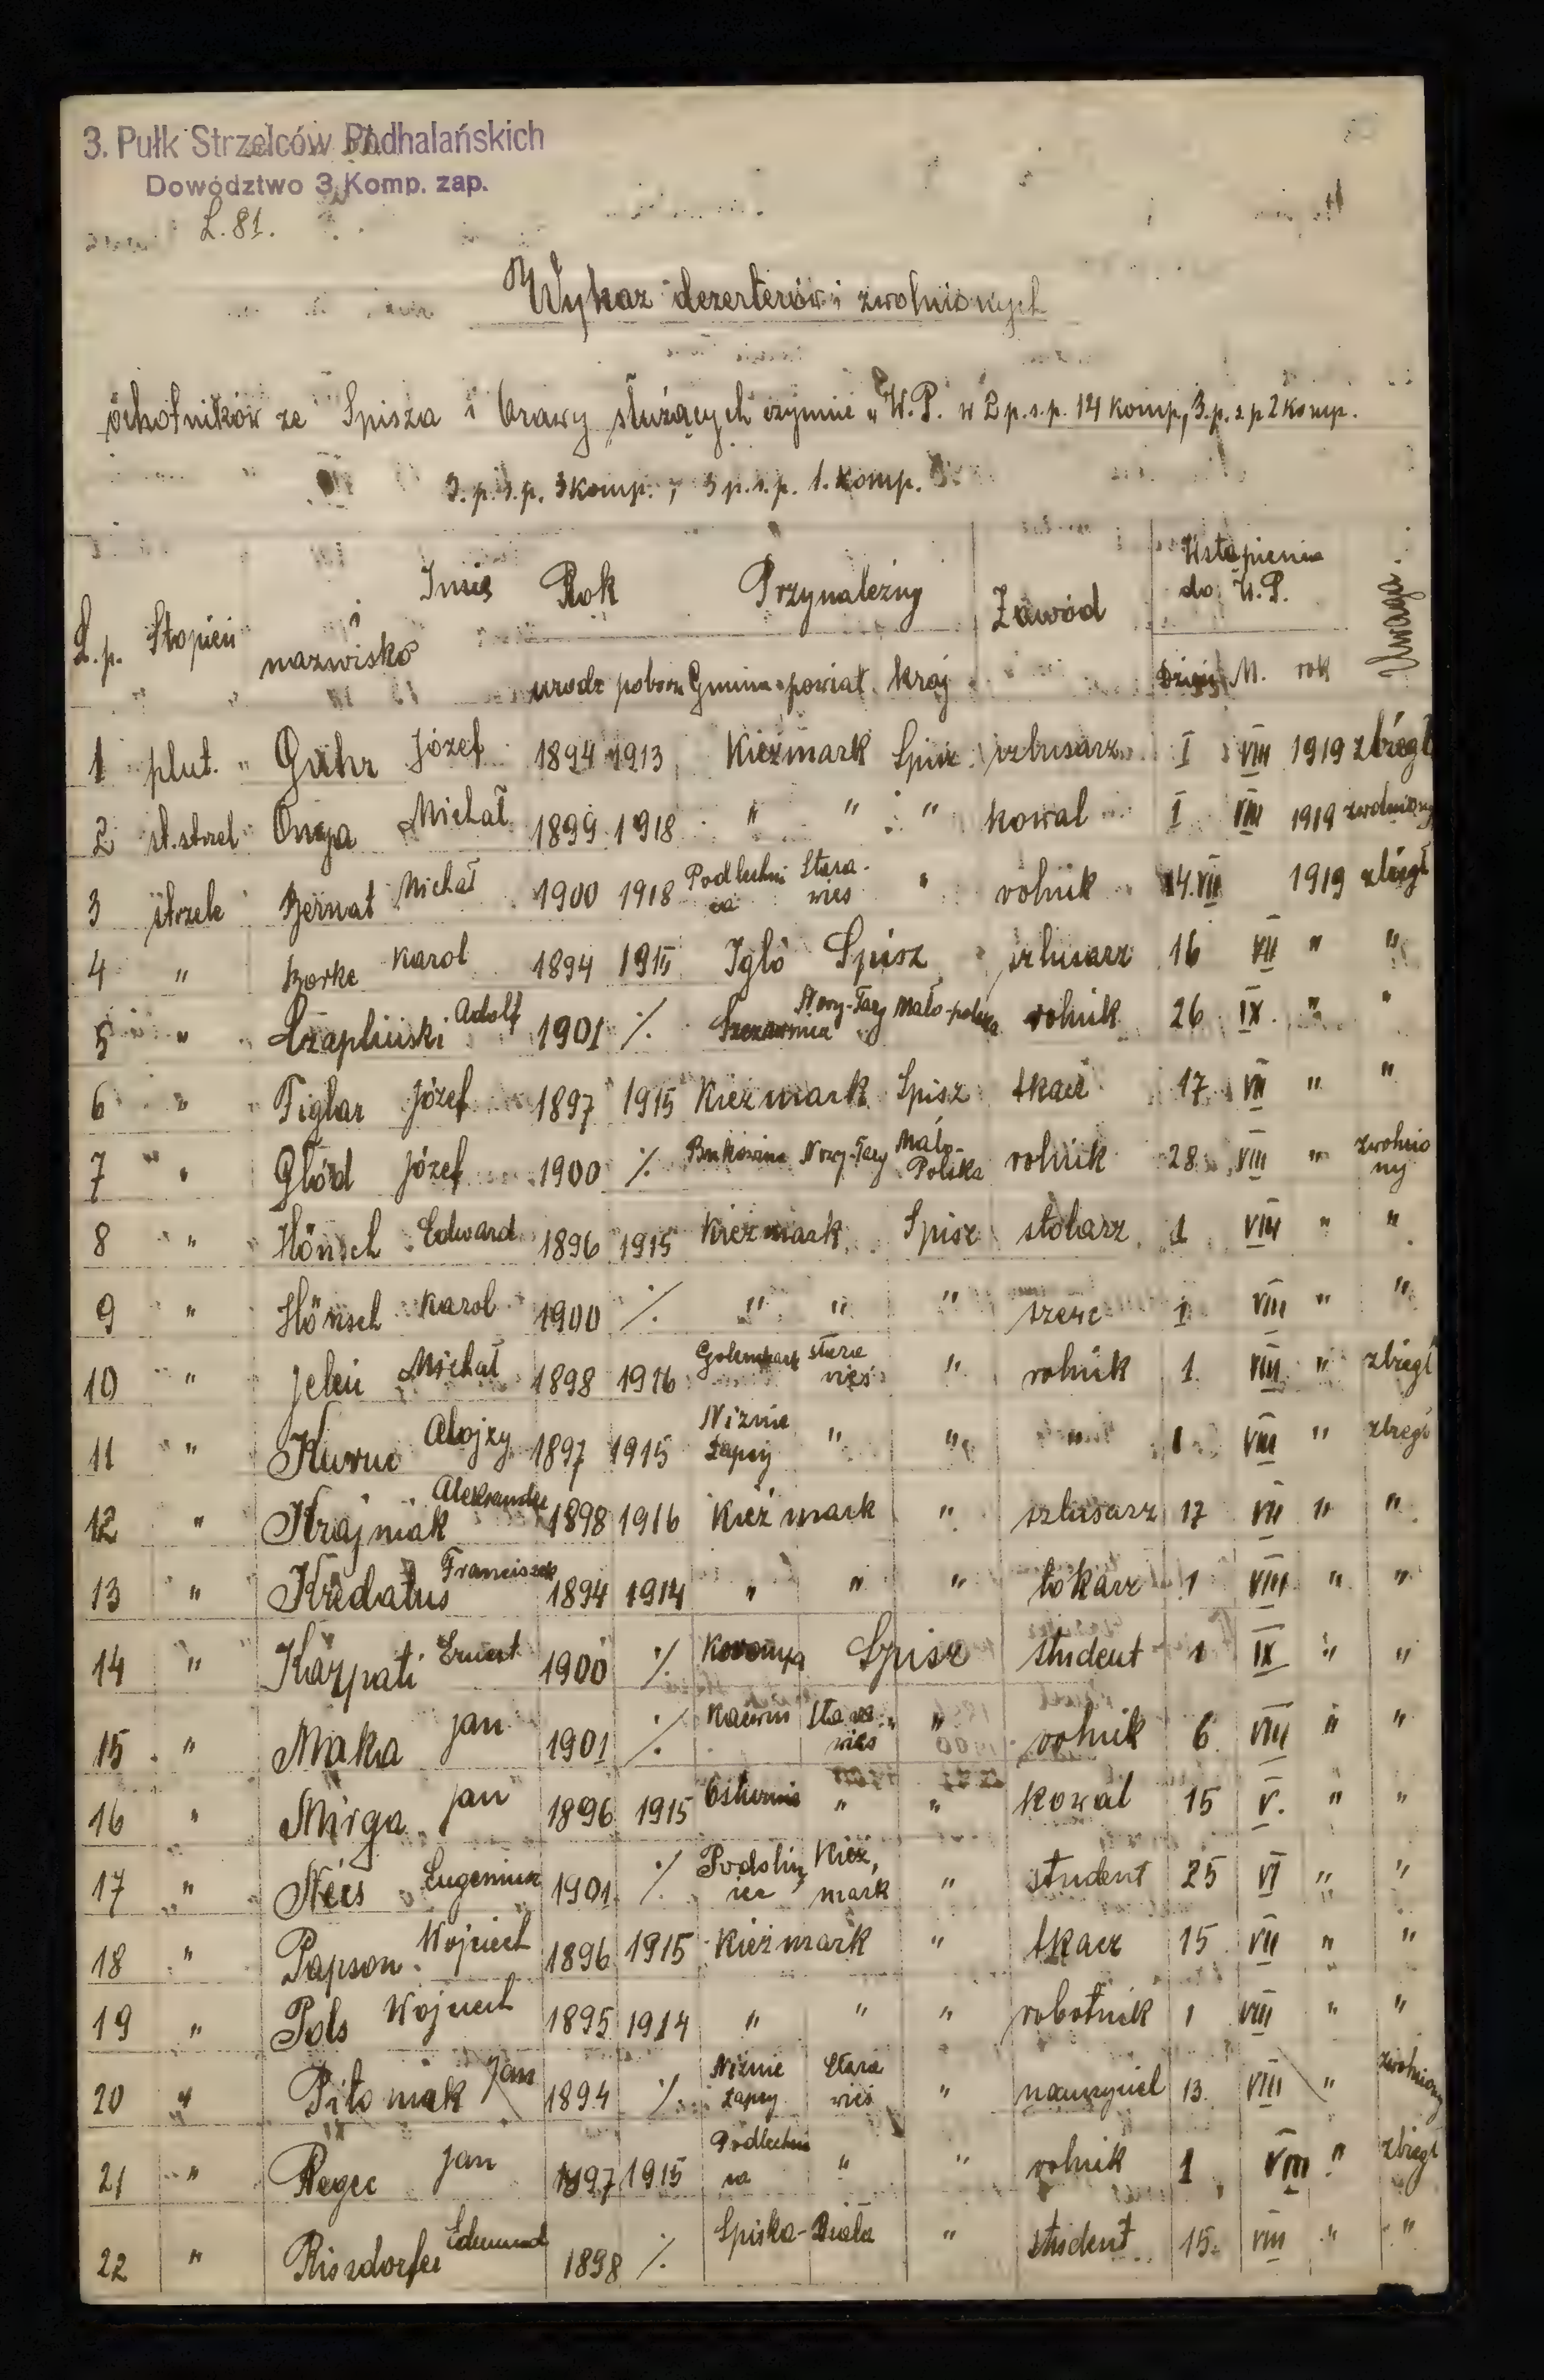 3. Pułk Strzelców Podhalańskich
Dowództwo 3 Komp. zap.
L. 81.
Wykaz dezerterów i zwolnionych
ochotników ze Spisza i Orawy służących czynnie w W.P. w 2 p.s.p. 14 komp, 3.p.s.p 2 komp.
3.p.s.p. 3 komp., 3 p.s.p. 1. komp.
L.p. Stopień Imię i nazwisko Rok Przynależny Zawód Wstąpienia do W.P. Uwaga
urodz poboru Gmina powiat kraj Dzień M. rok
1 plut. Guhr Józef 1894 1913 Kieżmark Spisz szlusarz I VIII 1919 zbiegł
2 st.strzel Michał 1899 1918 " " " kowal I VIII 1919 zwolniony
3 strzele Bernat Michał 1900 1918 Podlechnica Stara-wieś " rolnik 14.VII 1919 zbiegł
4 " Borke Karol 1894 1915 Igló Spisz szlusarz 16 VII " "
5 " Czapliński Adolf 1901 % Szczawnica Nowy-Targ Mało-polska rolnik 26 IX. " "
6 " Figlar Józef 1897 1915 Kieżmark Spisz tkacz 17 VII " "
7 " Głód Józef 1900 % Bukowina Nowy-Targ Mało-Polska rolnik 28 VIII " zwolniony
8 " Hönsch Edward 1896 1915 Kieżmark Spisz stolarz 1 VIII " "
9 " Hönsch Karol 1900 % " " " szewc 1 VIII " "
10 " Jeleń Michał 1898 1916 stara wieś " rolnik 1 VIII " zbiegł
11 " Kuruc Alojzy 1897 1915 Niżnie Łapsy " " " 1 VIII " zbiegł
12 " Krajniak Aleksander 1898 1916 Kieżmark " szlusarz 17 VII " "
13 " Kredatus Franciszek 1894 1914 " " " tokarz 1 VIII " "
14 " Karpati Ernest 1900 % Spisz student 1 IX " "
15 " Maka Jan 1901 % Kacwin Stara wieś " rolnik 6 VIII " "
16 " Mirga Jan 1896 1915 Osturnia " " kowal 15 V. " "
17 " Nées Eugeniusz 1901 % Kieżmark " student 25 VI " "
18 " Papson Wojciech 1896 1915 Kieżmark " tkacz 15 VII " "
19 " Pols Wojciech 1895 1914 " " " robotnik 1 VIII " "
20 " Pitoniak Jan 1894 % Niżnie Łapsy Stara wieś " nauczyciel 13 VIII " zwolniony
21 " Regec Jan 1897 1915 Podlechnica " " rolnik 1 VIII " zbiegł
22 " Riszdorfer Edmund 1898 % Spiska-Biała " student 15. VIII " "